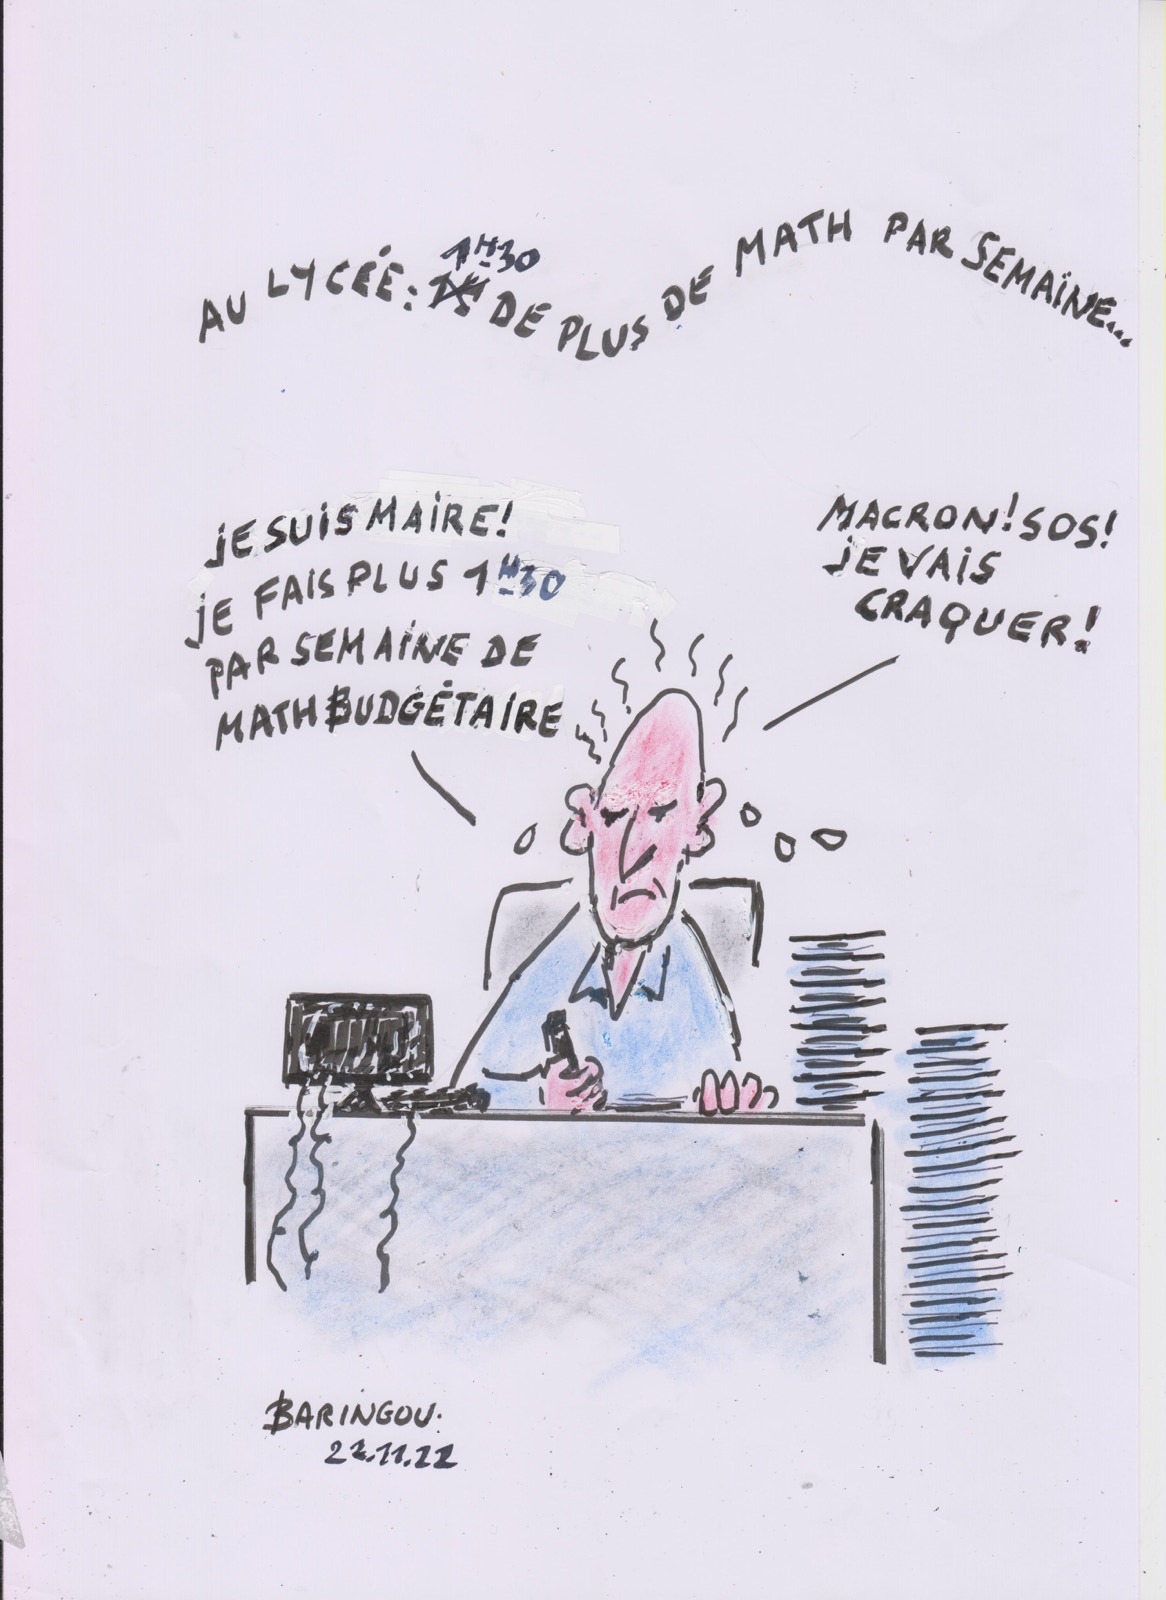 AU LYCÉE: 1H30 DE PLUS DE MATH PAR SEMAINE...
JE SUIS MAIRE!
JE FAIS PLUS 1H30
PAR SEMAINE DE
MATH BUDGÉTAIRE
MACRON! SOS!
JE VAIS
CRAQUER!
BARINGOU.
22.11.22